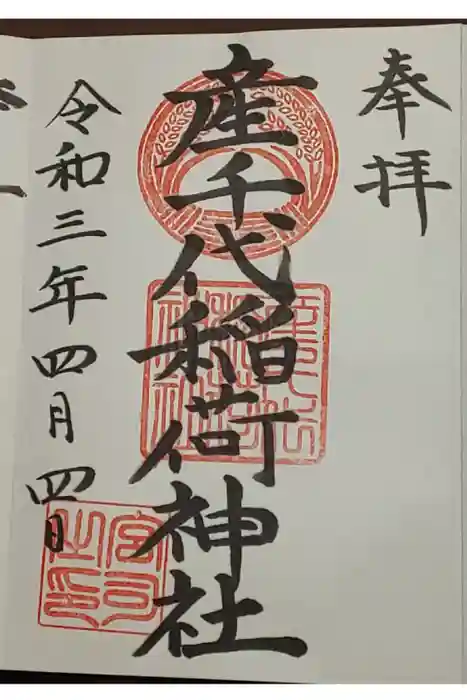 奉拝
産千代稲荷神社
令和三年四月四日
宮司之印